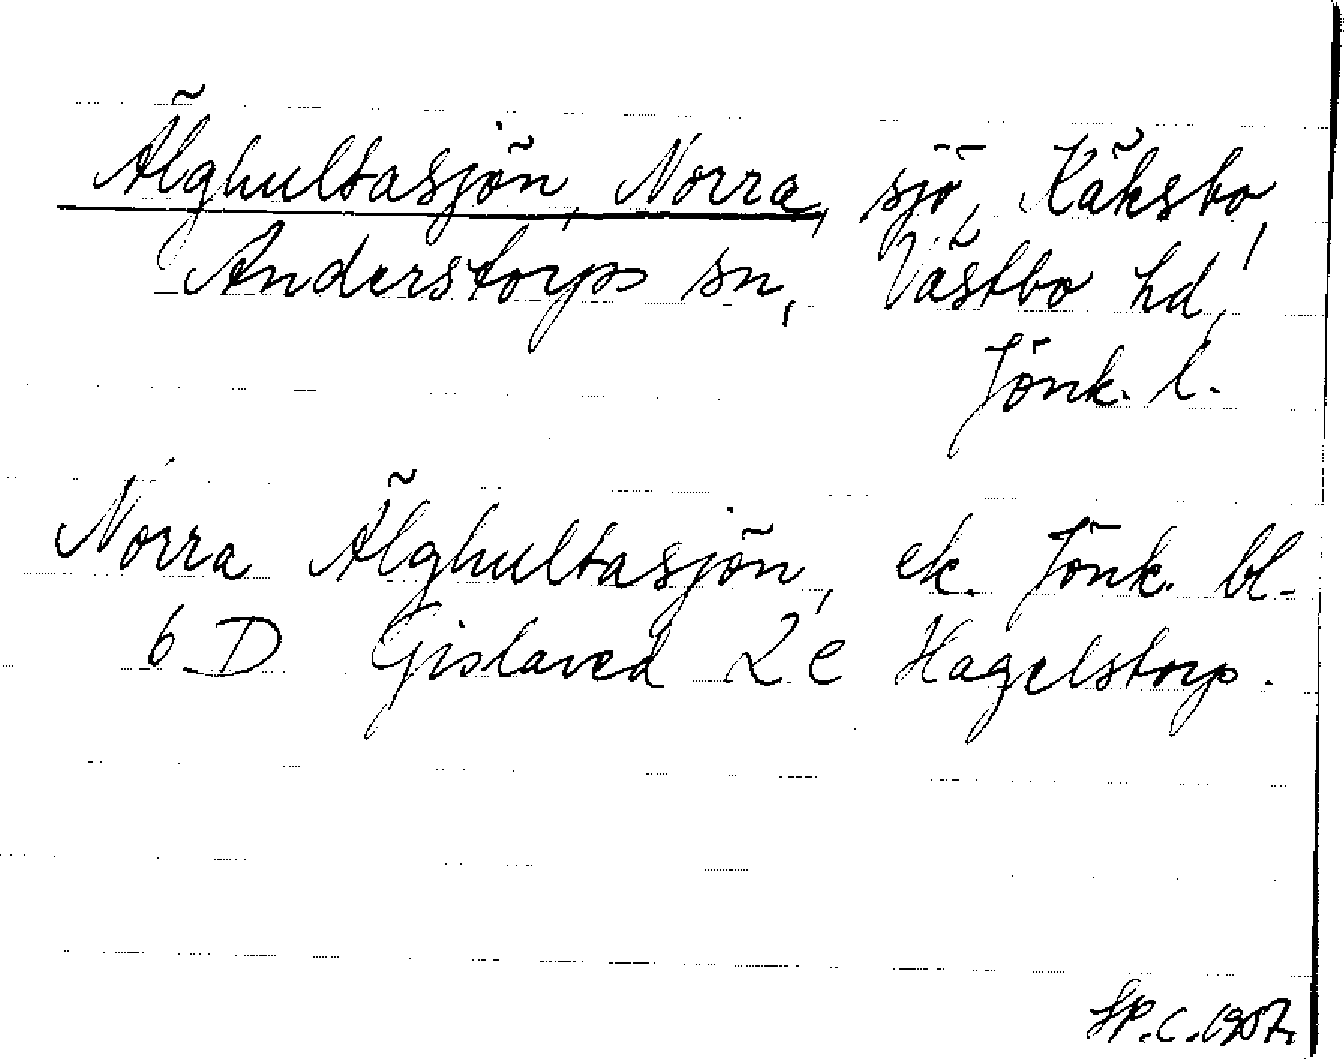 Älghultasjön, Norra, sjö, Käksbo,
Anderstorps sn, Västbo hd,
Jönk. l.
Norra Älghultasjön, ek. Jönk. bl.
6 D Gislaved 2 e Hagelstorp.